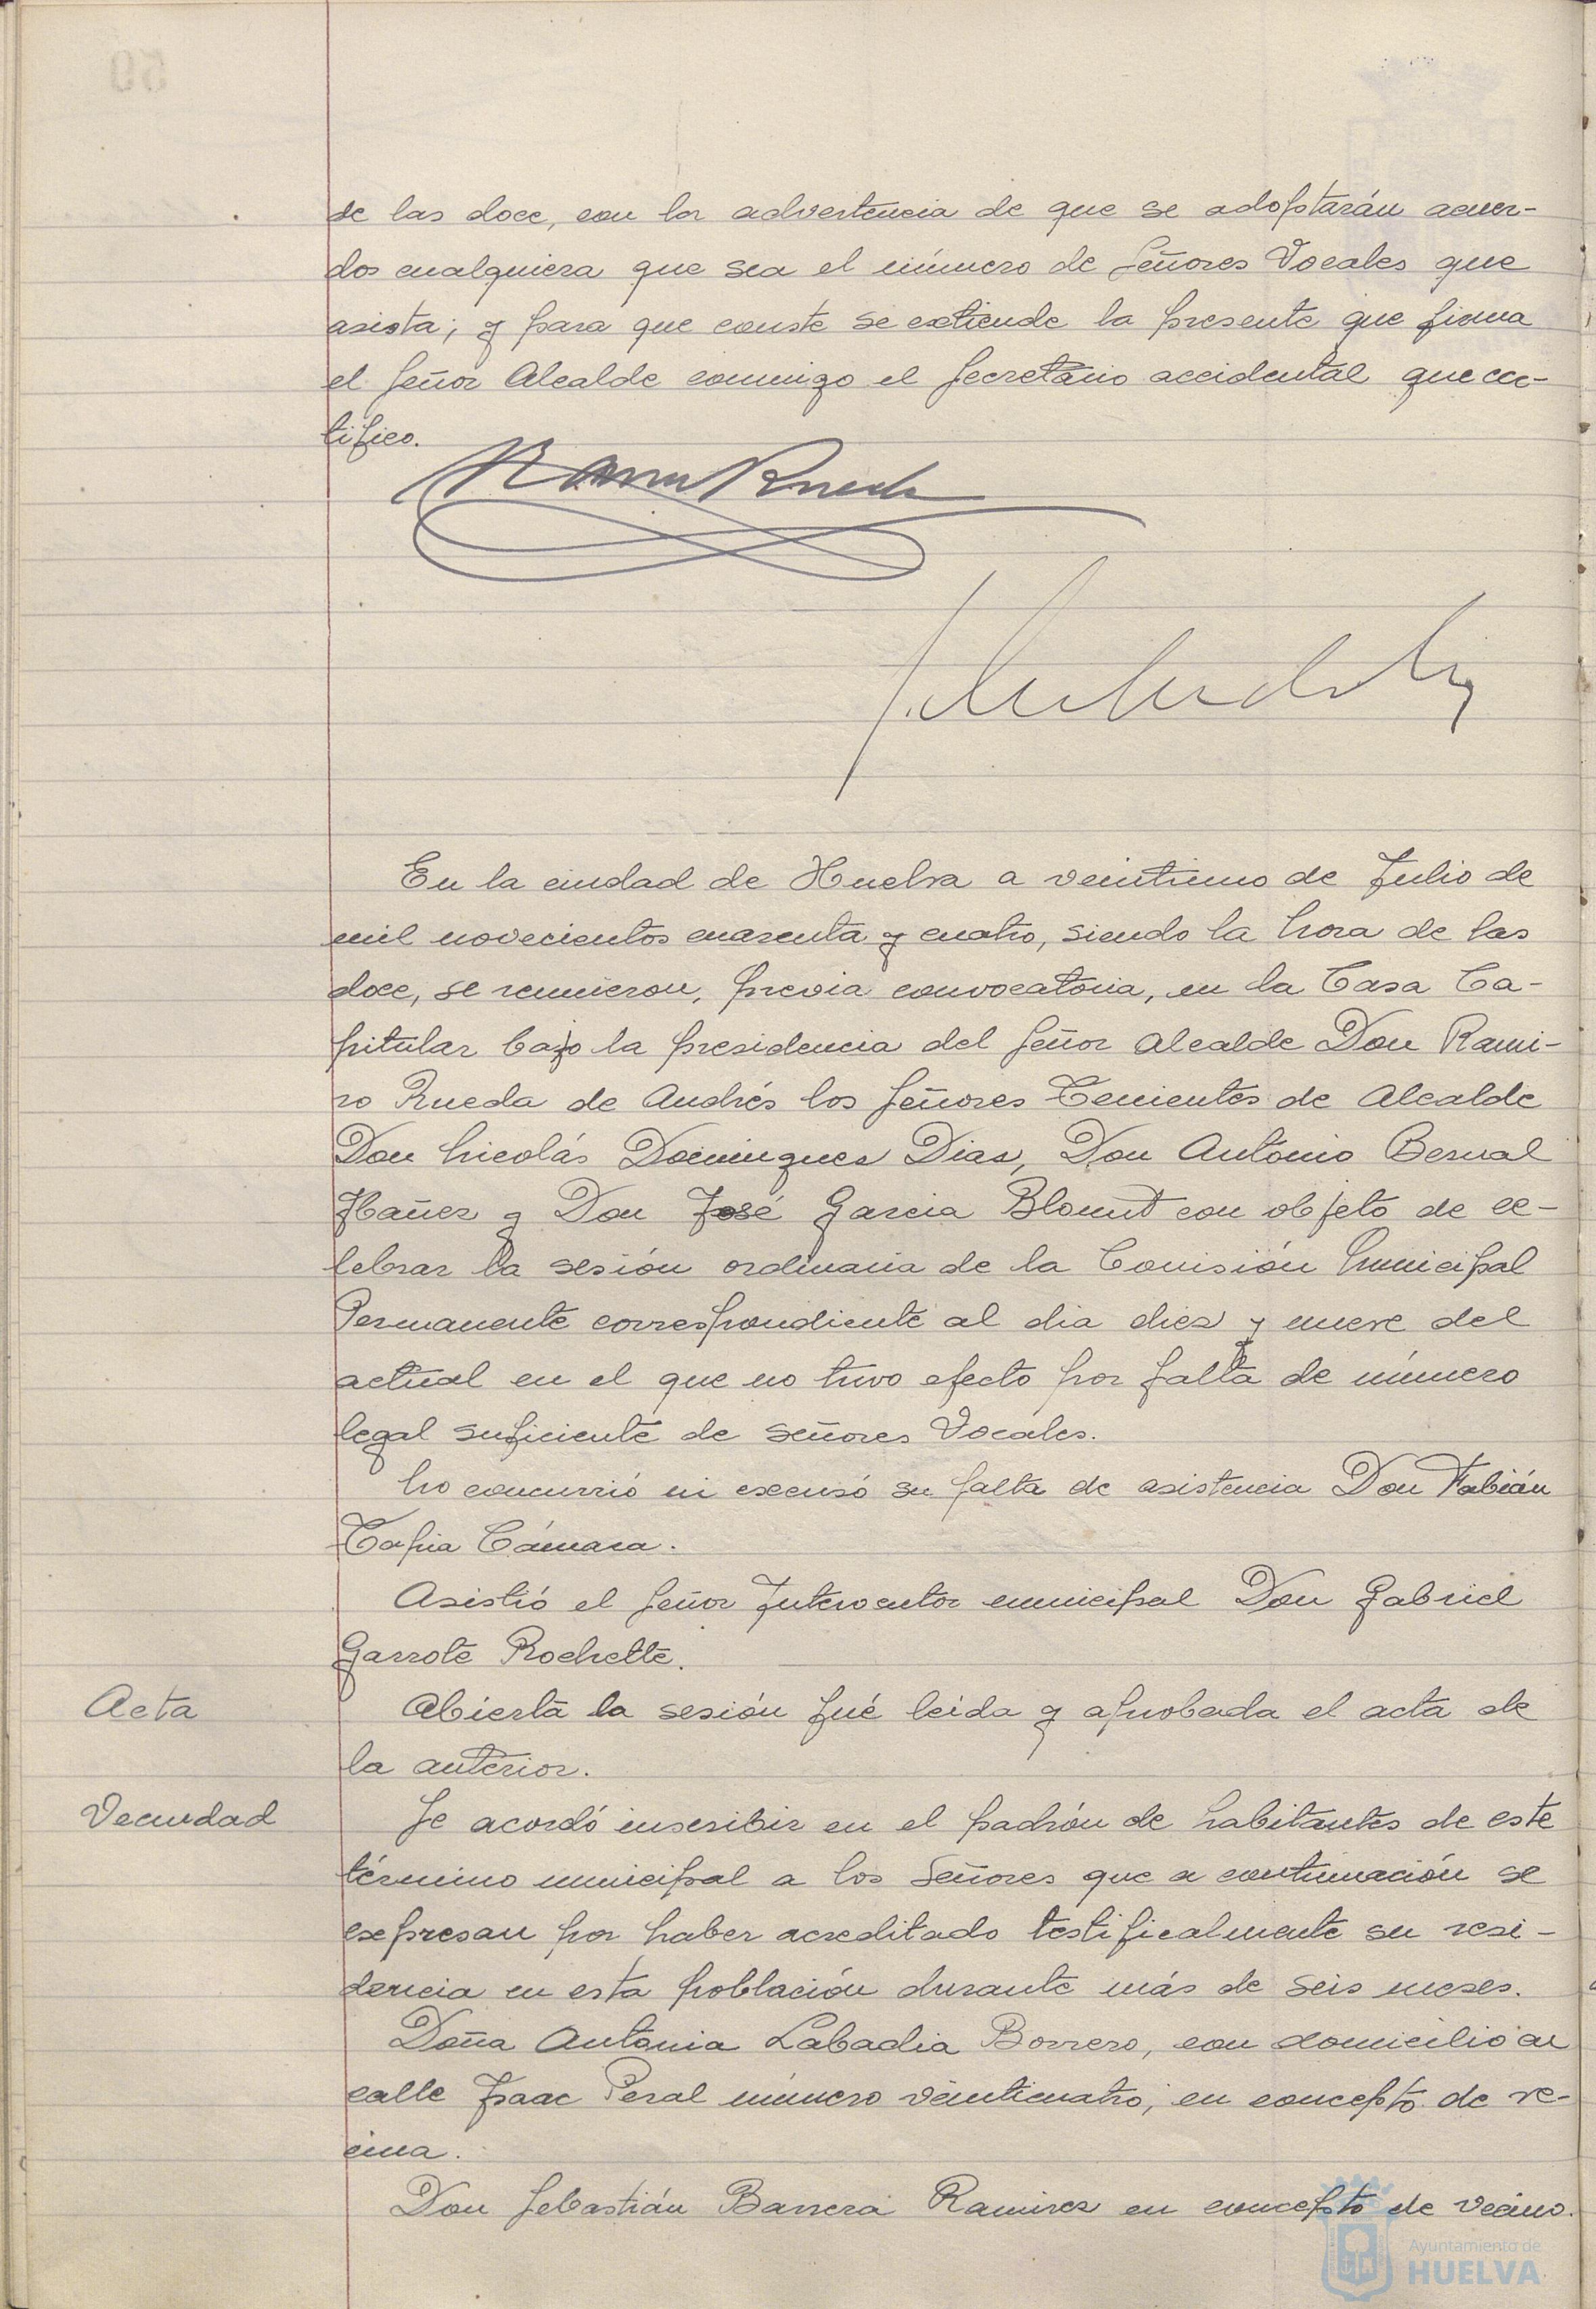 de las doce, con la advertencia de que se adoptarán acuer-
dos cualquiera que sea el número de Señores Vocales que
asista; y para que conste se extiende la presente que firma
el Señor Alcalde conmigo el Secretario accidental que cer-
tifico.
En la ciudad de Huelva a veintiuno de Julio de
mil novecientos cuarenta y cuatro, siendo la hora de las
doce, se reunieron, previa convocatoria, en la Casa Ca-
pitular bajo la presidencia del Señor Alcalde Don Rami-
ro Rueda de Andrés los Señores Tenientes de Alcalde
Don Nicolás Dominguez Diaz, Don Antonio Bernal
Ibañez y Don José Garcia Blount con objeto de ce-
lebrar la sesión ordinaria de la Comisión Municipal
Permanente correspondiente al dia diez y nueve del
actual en el que no tuvo efecto por falta de número
legal suficiente de señores Vocales.
No concurrió ni excusó su falta de asistencia Don Fabián
Tapia Cámara.
Asistió el Señor Interventor municipal Don Gabriel
Garrote Rochette.
Acta
Abierta la sesión fué leida y aprobada el acta de
la anterior.
Vecindad
Se acordó inscribir en el padrón de habitantes de este
término municipal a los Señores que a continuación se
expresan por haber acreditado testificalmente su resi-
dencia en esta población durante más de seis meses.
Doña Antonia Labadia Borrero, con domicilio en
calle Isaac Peral número veinticuatro, en concepto de ve-
cina.
Don Sebastián Barrera Ramirez en concepto de vecino.
Ayuntamiento de
HUELVA